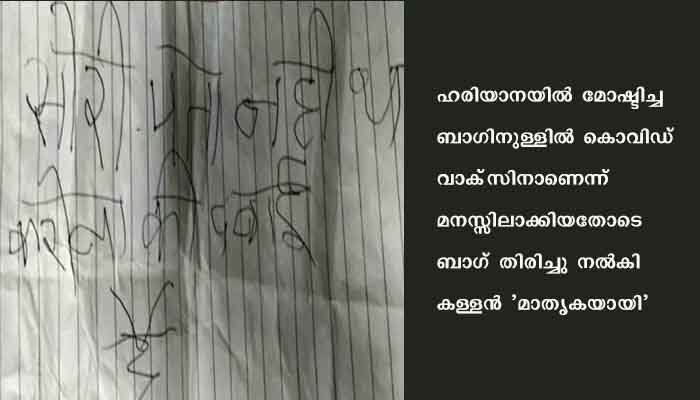 सोरी पता नही था
करोना की दवाई
है
ഹരിയാനയിൽ മോഷ്ടിച്ച
ബാഗിനുള്ളിൽ കൊവിഡ്
വാക്സിനാണെന്ന്
മനസ്സിലാക്കിയതോടെ
ബാഗ് തിരിച്ചു നൽകി
കള്ളൻ ’മാതൃകയായി’